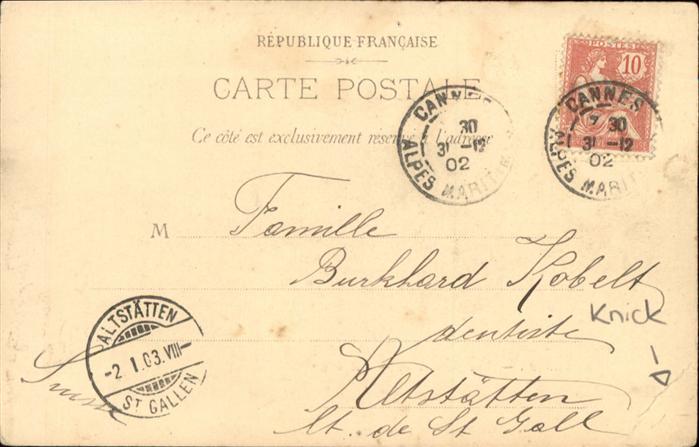 RÉPUBLIQUE FRANÇAISE
CARTE POSTALE
Ce côté est exclusivement réservé à l'adresse
POSTES
10
CANNES
7 30
31 -12
02
ALPES MARIT
CANNES
30
31 -12
02
ALPES MARIT
M Famille
Burkhard Kobelt
dentiste
Altstätten
Ct. de St Gall
Suisse
Knick
ALTSTÄTTEN
-2 I.03.VIII-
ST GALLEN